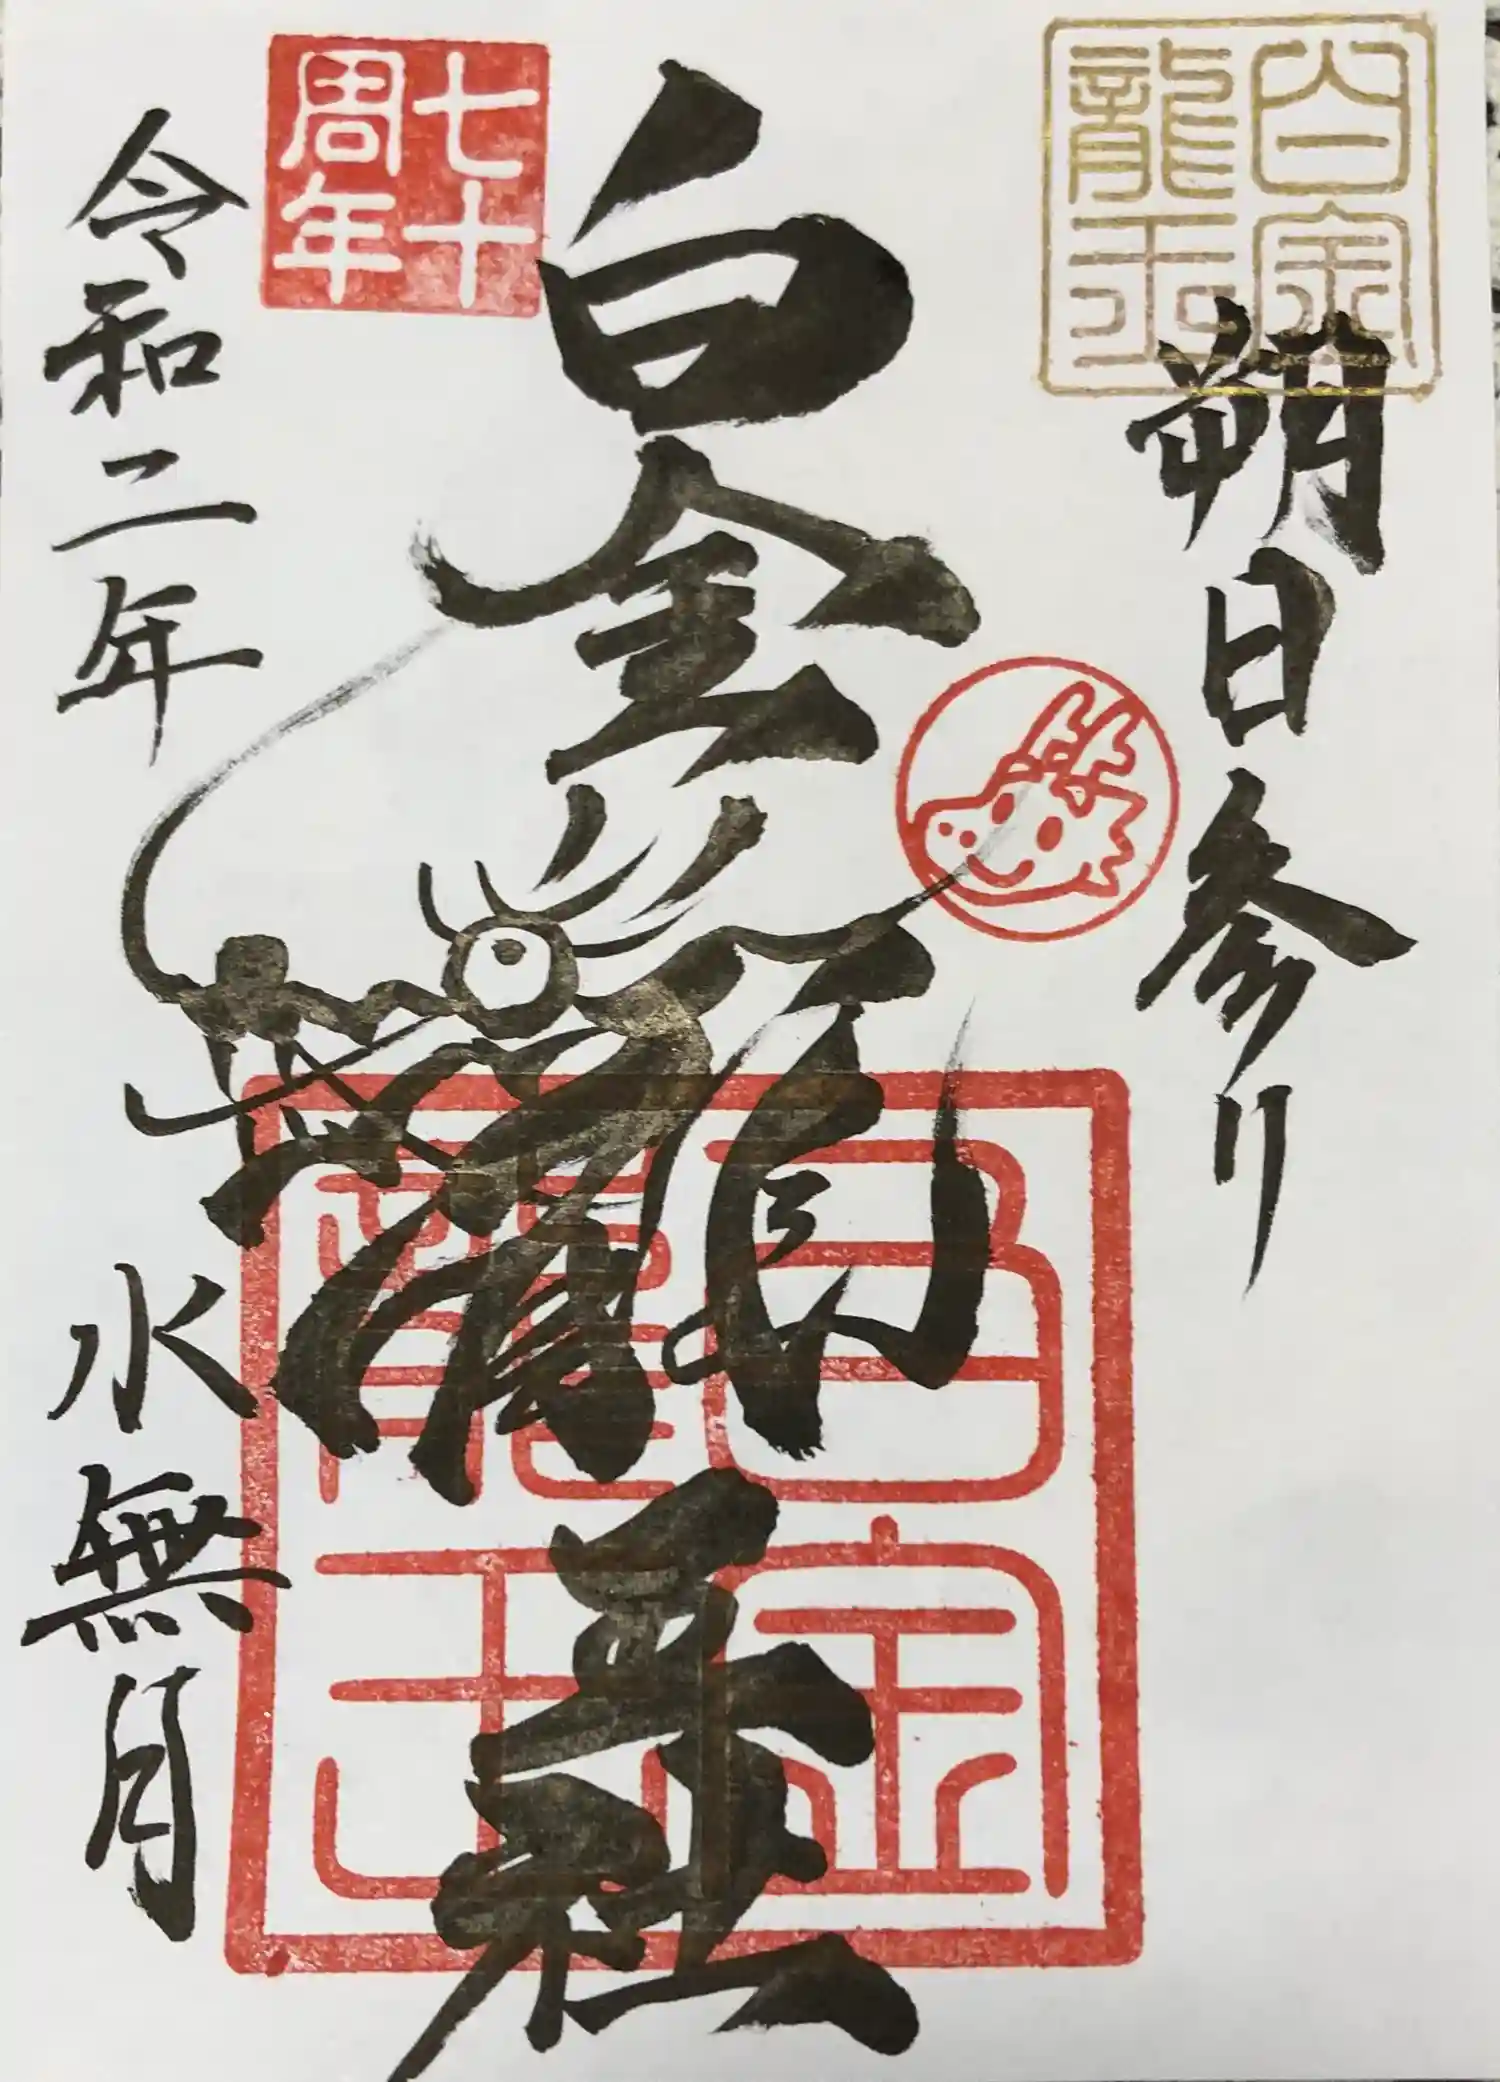 白金
龍王
朔日参り
白金龍王社
白金
龍王
七十
周年
令和二年 水無月